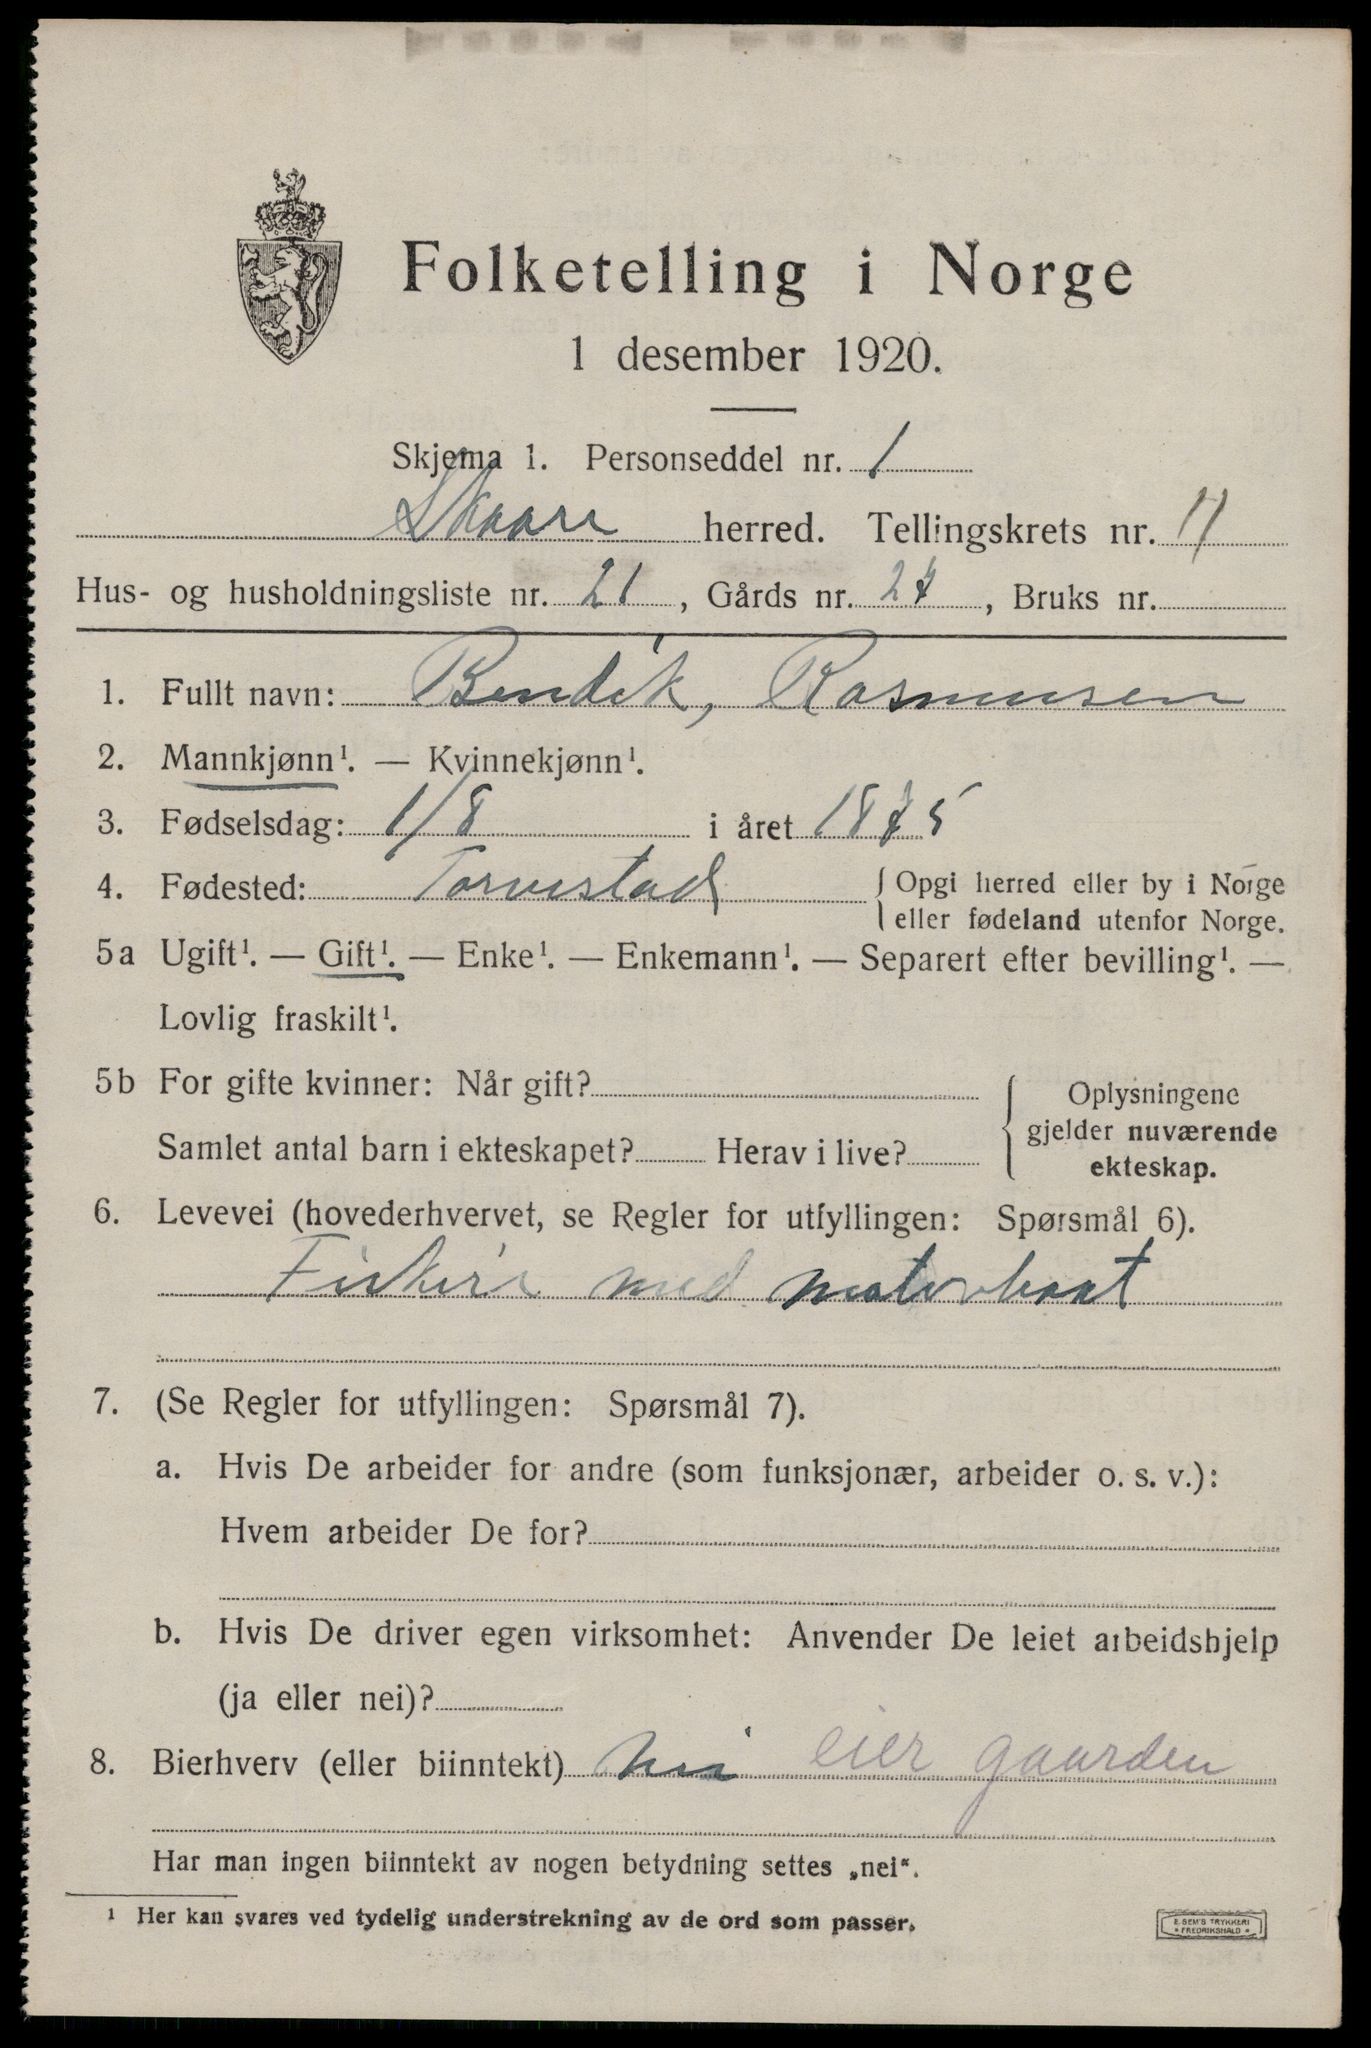 Folketelling i Norge
1 desember 1920.
Skjema 1. Personseddel nr. 1
Skaare herred. Tellingskrets nr. 11
Hus- og husholdningsliste nr. 21, Gårds nr. 27, Bruks nr.
1. Fullt navn: Bendik, Rasmussen
2. Mannkjønn¹. — Kvinnekjønn¹.
3. Fødselsdag: 1/8 i året 1875
4. Fødested: Torvestad {Opgi herred eller by i Norge
eller fødeland utenfor Norge.
5a Ugift¹. — Gift¹. — Enke¹. — Enkemann¹. — Separert efter bevilling¹. —
Lovlig fraskilt¹.
5b For gifte kvinner: Når gift?
Samlet antal barn i ekteskapet? Herav i live?
Oplysningene
gjelder nuværende
ekteskap.
6. Levevei (hovederhvervet, se Regler for utfyllingen: Spørsmål 6).
Fiskeri med motorbaat
7. (Se Regler for utfyllingen: Spørsmål 7).
a. Hvis De arbeider for andre (som funksjonær, arbeider o. s. v.):
Hvem arbeider De for?
b. Hvis De driver egen virksomhet: Anvender De leiet arbeidshjelp
(ja eller nei)?
8. Bierhverv (eller biinntekt) nei eier gaarden
Har man ingen biinntekt av nogen betydning settes „nei“.
¹ Her kan svares ved tydelig understrekning av de ord som passer.
E. SEM'S TRYKKERI
FREDRIKSHALD